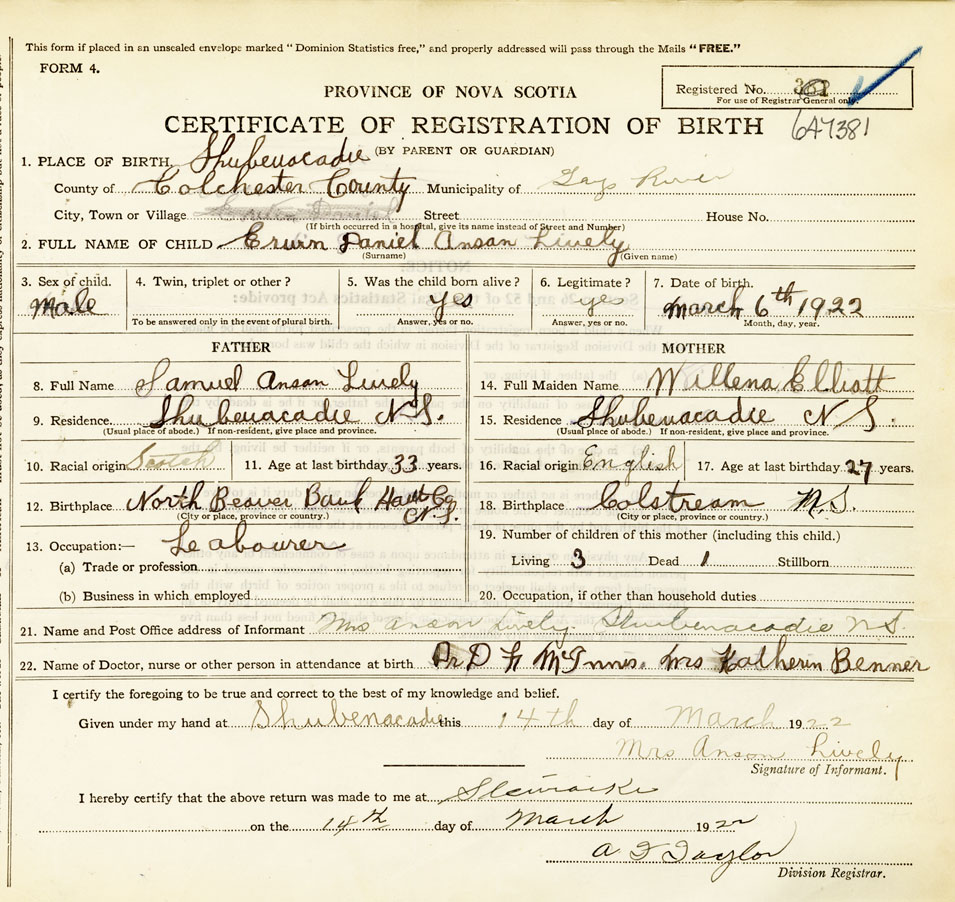 This form if placed in an unsealed envelope marked "Dominion Statistics free," and properly addressed will pass through the Mails "FREE."
FORM 4.
Registered No.
For use of Registrar General only.
PROVINCE OF NOVA SCOTIA
CERTIFICATE OF REGISTRATION OF BIRTH 647381
(BY PARENT OR GUARDIAN)
1. PLACE OF BIRTH, Shubenacadie
County of Colchester County Municipality of Gays River
City, Town or Village Street House No.
(If birth occurred in a hospital, give its name instead of Street and Number)
2. FULL NAME OF CHILD Erwin Daniel Ansan Lively
(Surname) (Given name)
3. Sex of child. 4. Twin, triplet or other? 5. Was the child born alive? 6. Legitimate? 7. Date of birth.
Male yes yes March 6th 1922
To be answered only in the event of plural birth. Answer, yes or no. Answer, yes or no. Month, day, year.
FATHER MOTHER
8. Full Name Samuel Ansan Lively 14. Full Maiden Name Willena Elliott
9. Residence. Shubenacadie N S. 15. Residence Shubenacadie N S.
(Usual place of abode.) If non-resident, give place and province. (Usual place of abode.) If non-resident, give place and province.
10. Racial origin Scotch 11. Age at last birthday 33 years. 16. Racial origin English 17. Age at last birthday 27 years.
12. Birthplace North Beaver Bank Co N.S. 18. Birthplace Colstream N.S.
(City or place, province or country.) (City or place, province or country.)
13. Occupation:— Leabourer 19. Number of children of this mother (including this child.)
(a) Trade or profession Living 3 Dead 1 Stillborn
(b) Business in which employed 20. Occupation, if other than household duties
21. Name and Post Office address of Informant Mrs Anson Lively Shubenacadie N S.
22. Name of Doctor, nurse or other person in attendance at birth. Dr D McInnis. Mrs Katherin Benner
I certify the foregoing to be true and correct to the best of my knowledge and belief.
Given under my hand at Shubenacadie this 14th day of March 1922
Mrs Anson Lively
Signature of Informant.
I hereby certify that the above return was made to me at Stewiacke
on the 14th day of March 1922
A F Taylor
Division Registrar.